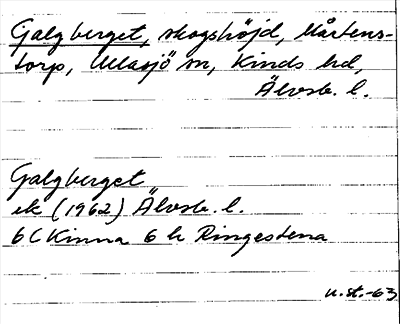 Galgberget, skogshöjd, Mårtens-
torp, Ullasjö sn, Kinds hd,
Älvsb. l.
Galgberget
ek (1962) Älvsb. l.
6C Kinna 6 h Ringestena
n.st.-63